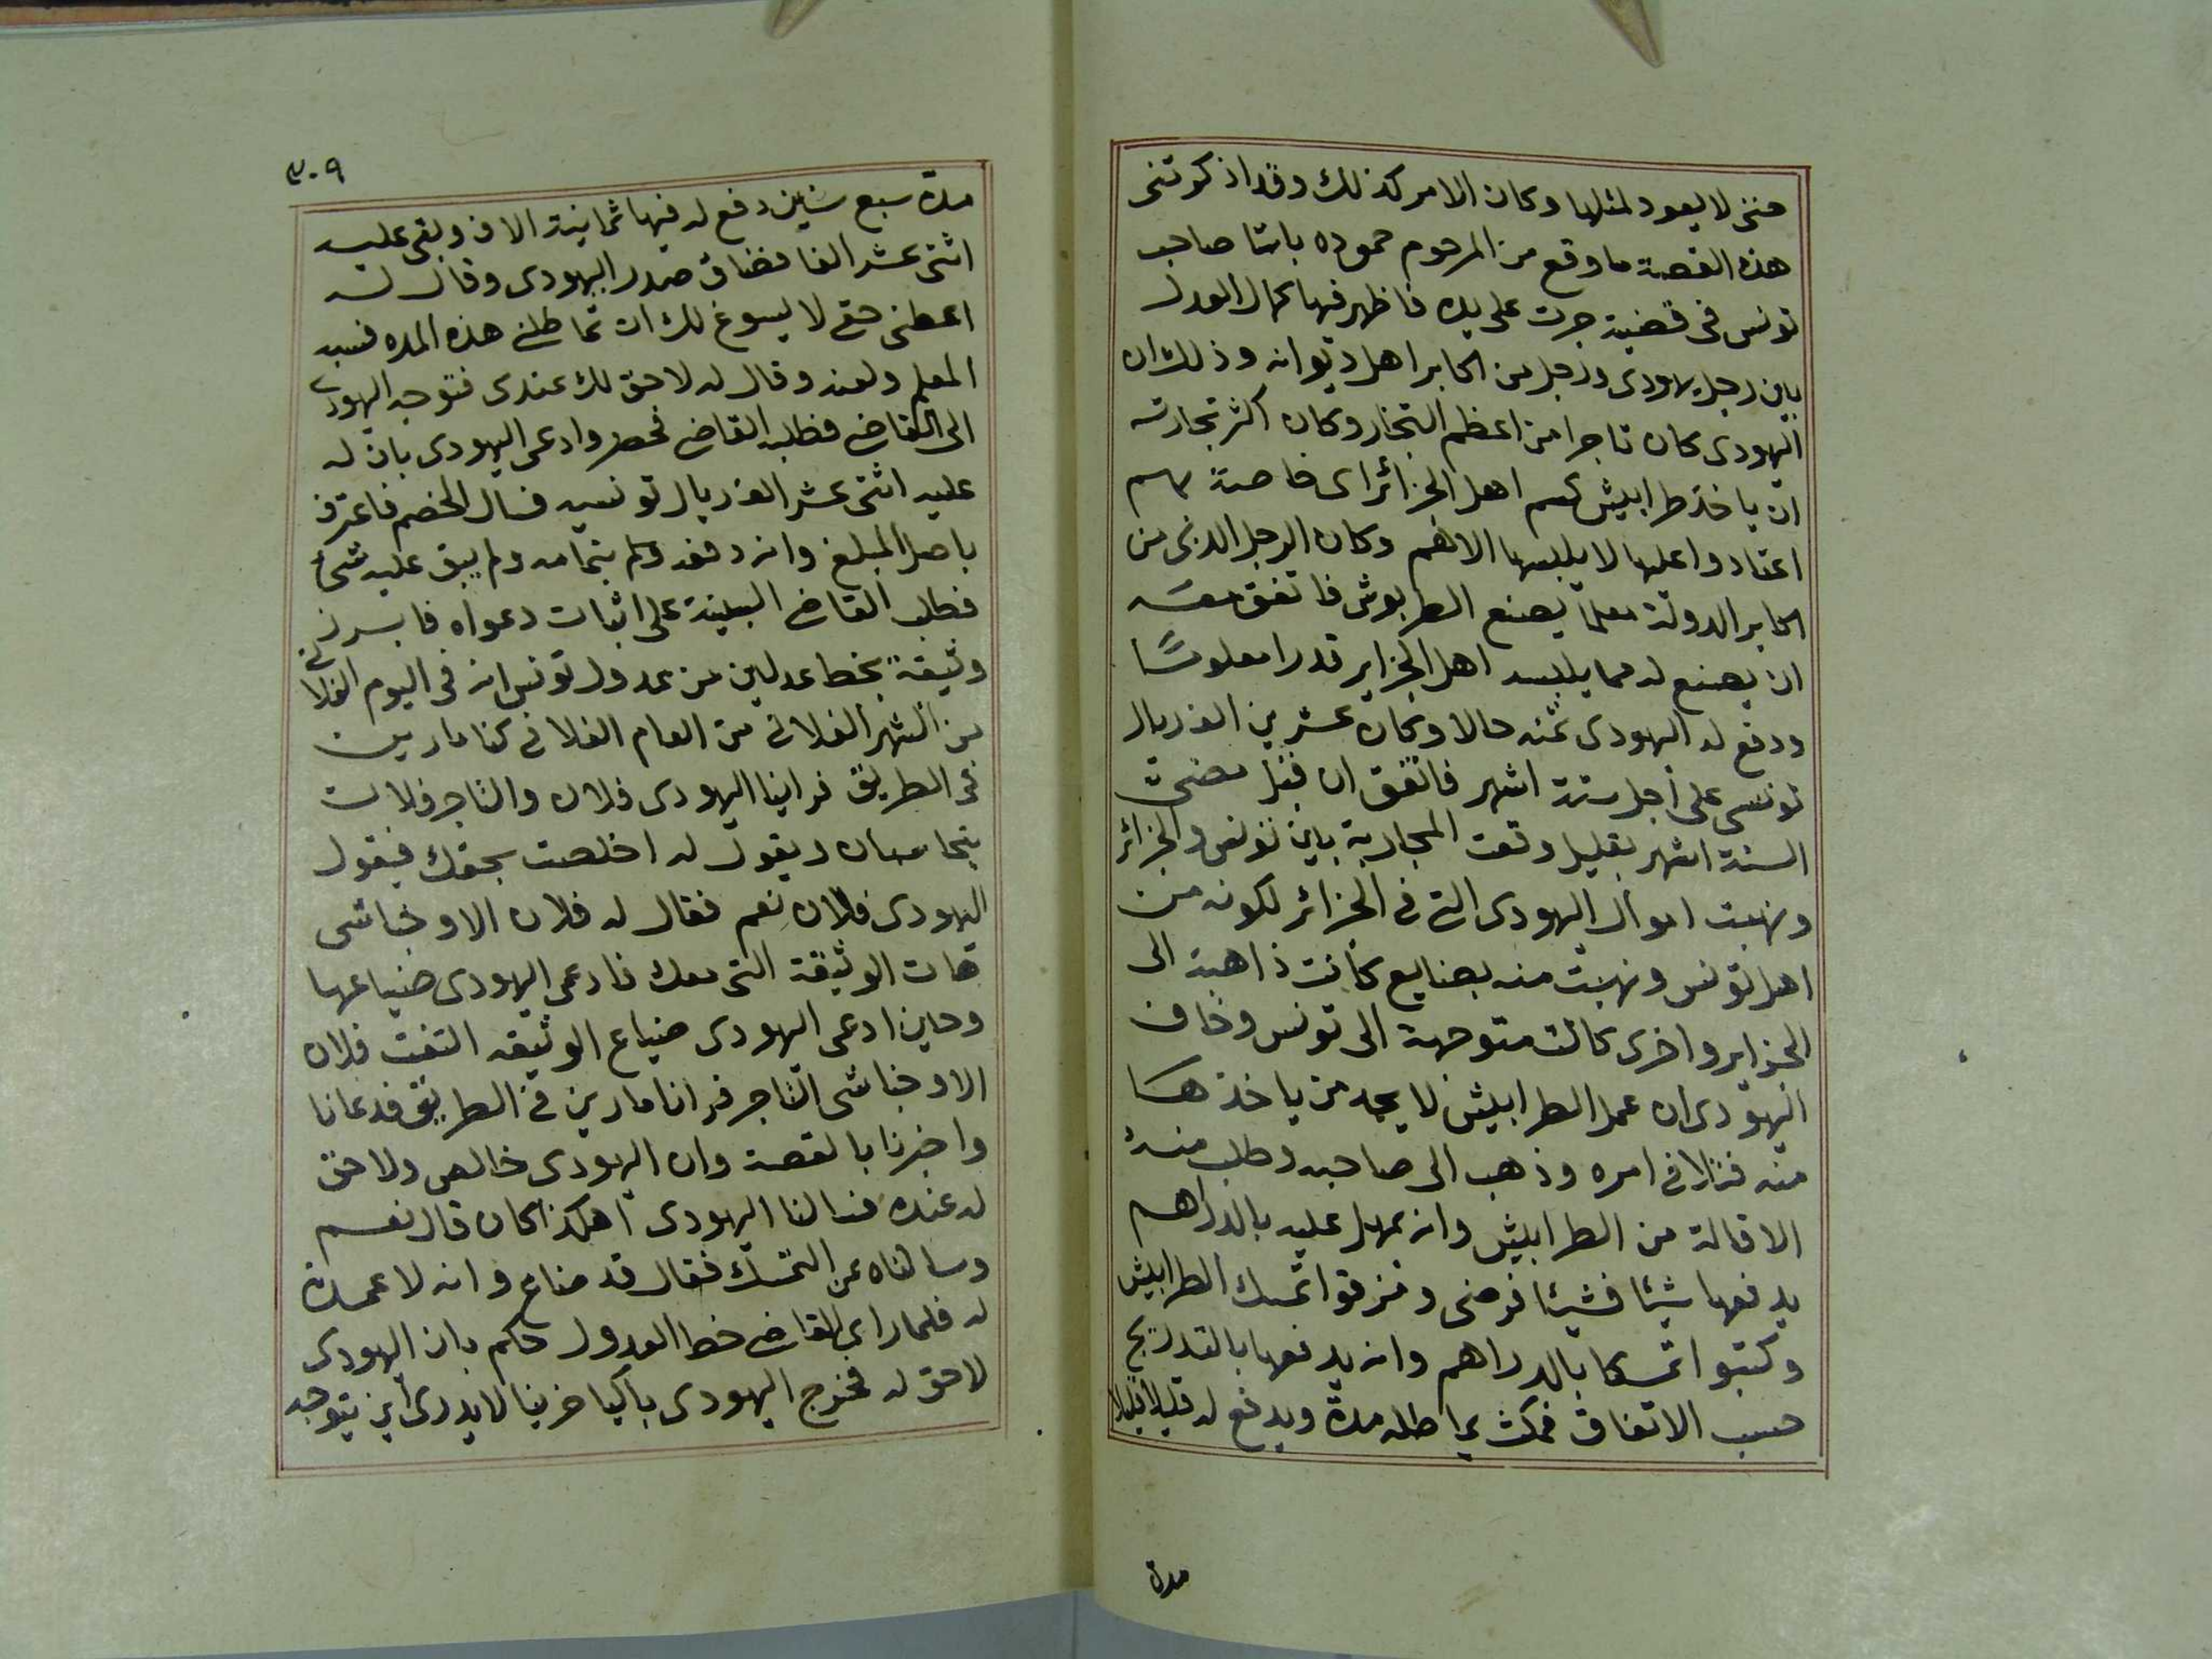 حتى لا يعود لمثلها وكان الامر كذلك وقد اذكرتنى
هذه القصة ما وقع من المرحوم حموده باشا صاحب
تونس فى قضية جرت على يده فاظهر فيها كمال العدل
بين رجل يهودى ورجل من اكابر اهل ديوانه وذلك ان
اليهودى كان تاجرا من اعظم التجار وكان اكثر تجارته
ان ياخذ طرابيش اهل الجزائر اى خاصة بهم
اعتادوا عليها لا يلبسها الا هم وكان الرجل الذى من
اكابر الدولة معلما يصنع الطربوش فاتفق معه
ان يصنع له مما يلبسه اهل الجزاير قدرا معلوما
ودفع له اليهودى ثمنه حالا وكان عشرين الف ريال
تونسى على اجل ستة اشهر فاتفق ان قبل مضى
الستة اشهر بقليل وقعت المحاربة بين تونس والجزائر
ونهبت اموال اليهودى التى فى الجزائر لكونه من
اهل تونس ونهبت منه بضايع كانت ذاهبة الى
الجزاير واخرى كانت متوجهة الى تونس وخاف
اليهودى ان عمل الطرابيش لا يجد من ياخذها
منه فتلافى امره وذهب الى صاحبه وطلب منه
الاقالة من الطرابيش وانه يمهل عليه بالدراهم
يدفعها شيئا فشيئا فرضى ومزقوا تمسك الطرابيش
وكتبوا تمسكا بالدراهم وانه يدفعها بالتدريج
حسب الاتفاق فمكث يماطله مدة ويدفع له قليلا قليلا
مدة
٣٠٩
مدة سبع سنين دفع له فيها ثمانية الاف وبقى عليه
اثنى عشر الفا فضاق صدر اليهودى وقال له
اعطنى حقى لا يسوغ لك ان تماطلنى هذه المده فسبه
المعلم ولعنه وقال له لا حق لك عندى فتوجه اليهودى
الى القاضى فطلبه القاضى فحضر وادعى اليهودى بان له
عليه اثنى عشر الف ريال تونسيه فسال الخصم فاعترف
باصل المبلغ وانه دفعه له بتمامه ولم يبق عليه شئ
فطلب القاضى البينة على اثبات دعواه فابرز
وثيقة بخط عدلين من عدول تونس انه فى اليوم الفلانى
من الشهر الفلانى من العام الفلانى كنا مارين
فى الطريق فراينا اليهودى فلان والتاجر فلان
يتحاسبان ويقول له اخلصت بحقك فيقول
اليهودى فلان نعم فقال له فلان الاوضباشى
هات الوثيقة التى معك فادعى اليهودى ضياعها
وحين ادعى اليهودى ضياع الوثيقه التفت فلان
الاوضباشى التاجر فرانا مارين فى الطريق فدعانا
واخبرنا بالقصة وان اليهودى خالص ولا حق
له عنده فسالنا اليهودى اهكذا كان قال نعم
وسالناه عن التمسك فقال قد ضاع وانه لا عمدة
له فلما راى القاضى خط العدول حكم بان اليهودى
لا حق له فخرج اليهودى باكيا حزينا لا يدرى اين يتوجه